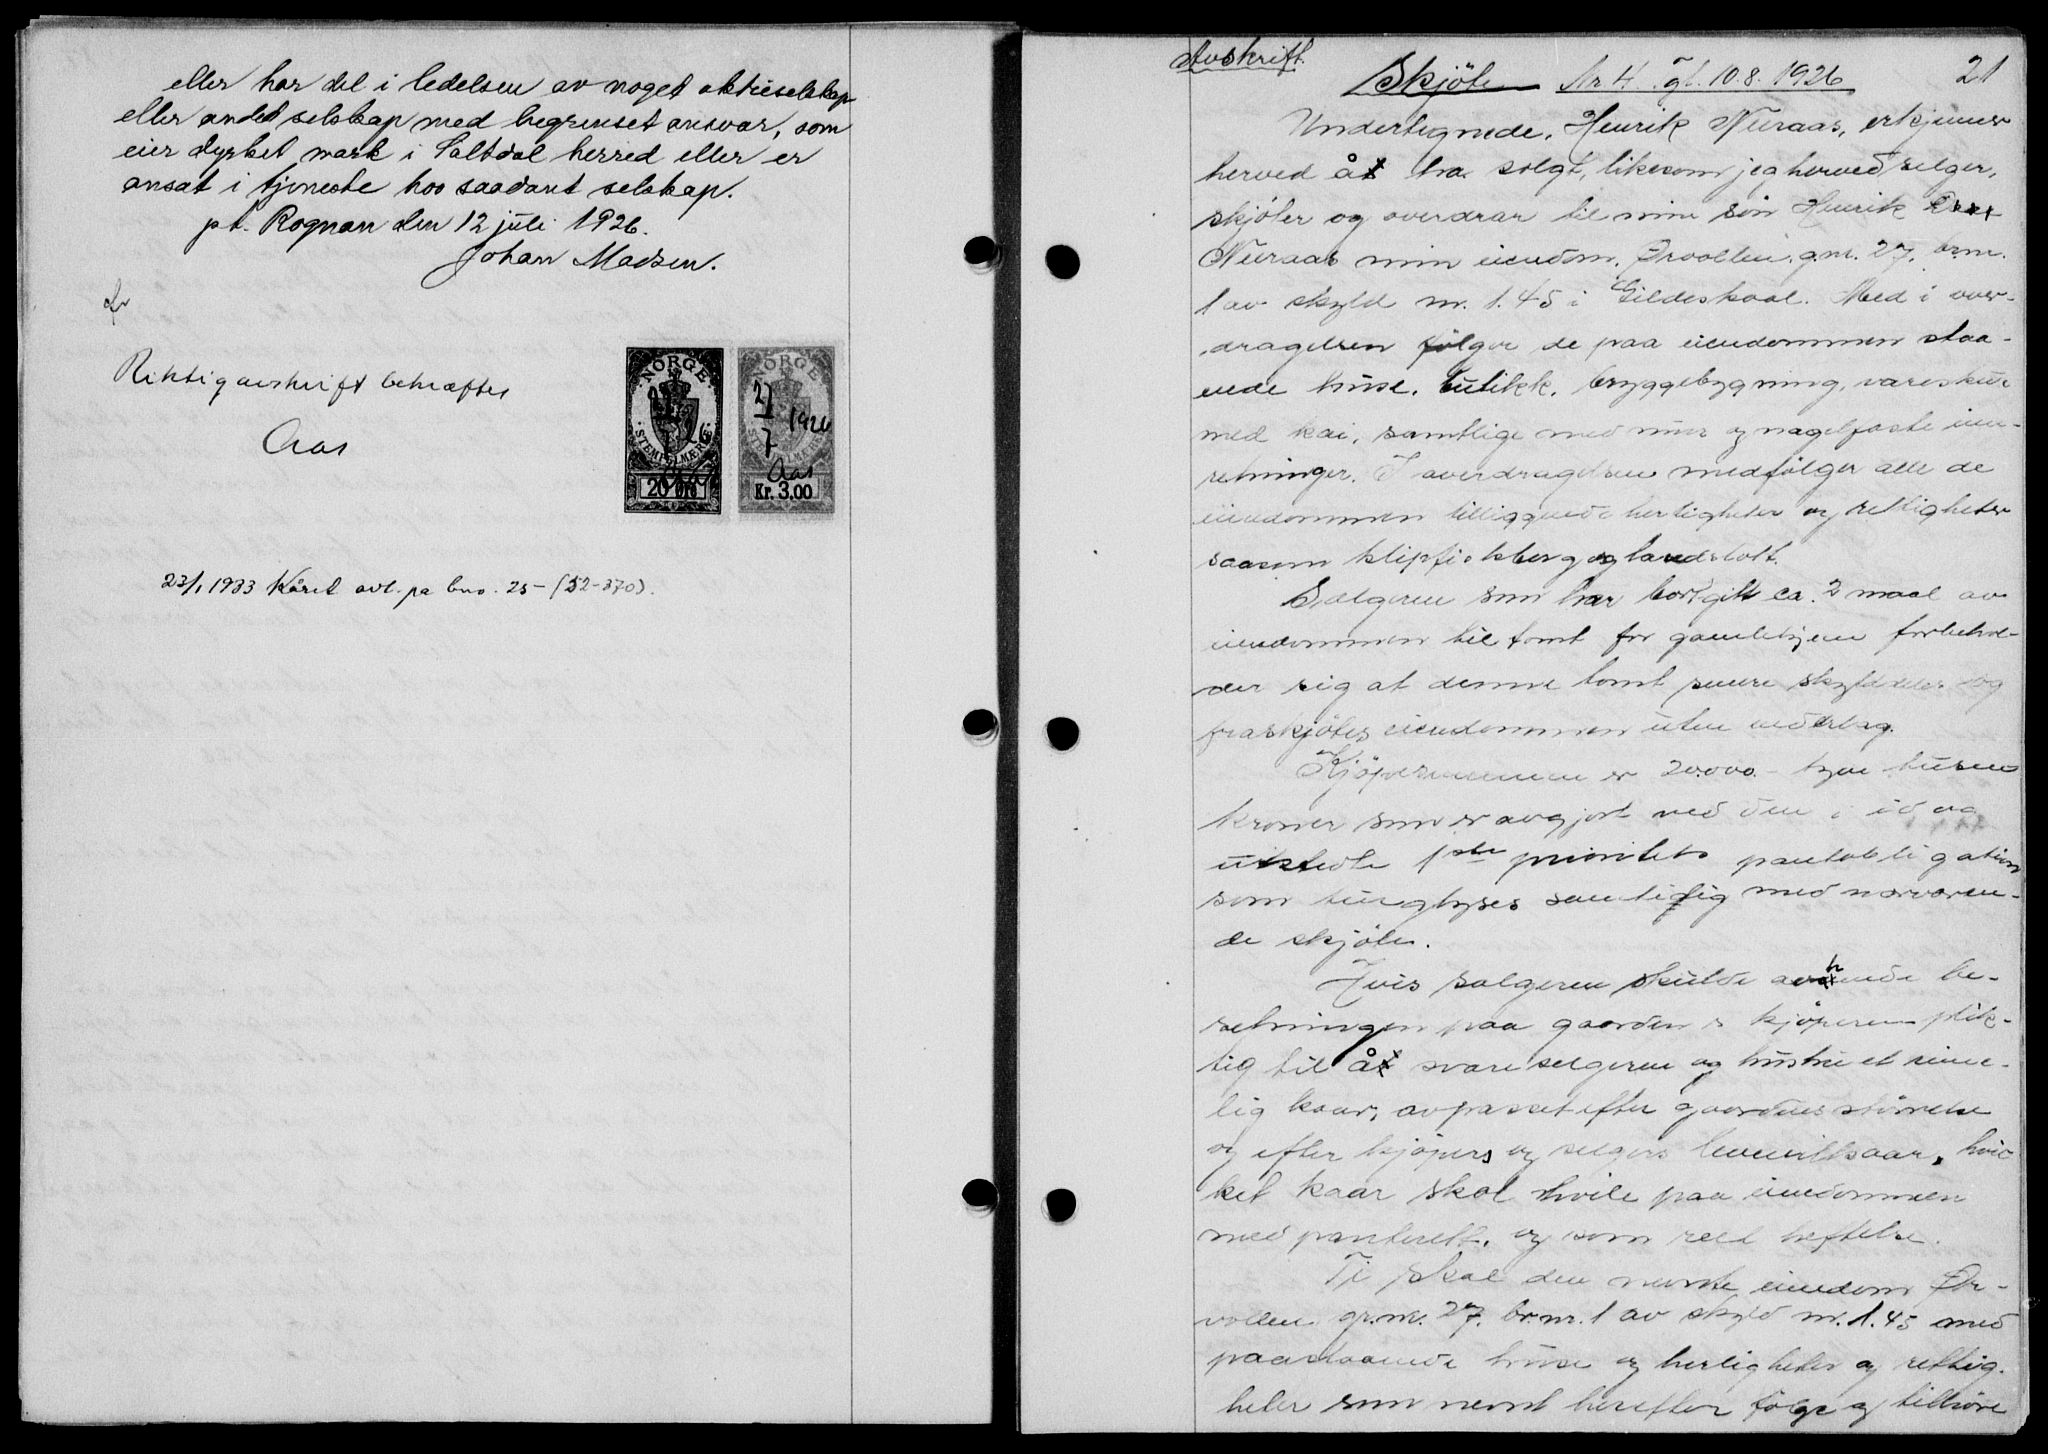 eller har del i ledelsen av noget aktieselskap
eller andet selskap med begrenset ansvar, som
eier dyrket mark i Saltdal herred eller er
ansat i tjeneste hos saadant selskap.
pt. Rognan den 12 juli 1926.
Johan Madsen.
Riktig avskrift bekræftes
Aas
NORGE
STEMPELMÆRKE
20 ØRE
NORGE
27/7 1926
Aas
Kr. 3.00
23/1 1933 Kåret avl. på bno. 25 - (52-370).
Avskrift.
Skjöte Nr 4. Tgl. 10.8.1926
21
Undertegnede, Henrik Nuraas, erkjenner
herved å ha solgt, likesom jeg herved selger,
skjöter og overdrar til min sön Henrik
Nuraas min eiendom, Ørvollen g.nr. 27, br.nr.
1 av skyld m. 1.45 i Gildeskaal. Med i over-
dragelsen fölger de paa eiendommen staa-
ende huse, butikk, bryggebygning, vareskur
med kai, samtlige med mur og nagelfaste inn-
retninger. I overdragelsen medfölger alle de
eiendommen tilliggende herligheter og rettigheter
saasom klipfiskberg og landslott.
Selgeren som har bortgitt ca. 2 maal av
eiendommen til tomt for gamlehjem forbehol-
der sig at denne tomt senere skylddeles og
fraskjötes eiendommen uten vederlag.
Kjöpesummen er 20.000.- tyve tusen
kroner som er avgjort ved den i idag
utstedte 1ste prioritets pantobligation
som tinglyses samtidig med nærværen-
de skjöte.
Hvis selgeren skulde avhende be-
retningen paa gaarden er kjöperen plik-
tig til å svare selgeren og hustru et rime-
lig kaar, avpasset efter gaardens störrelse
og efter kjöpers og selgers levevilkaar, hvil-
ket kaar skal hvile paa eiendommen
med panterett, og som reel heftelse.
Ti skal den nevnte eiendom Ør-
vollen gr.nr. 27, br.nr. 1 av skyld m. 1.45 med
paastaaende huse og herligheter og rettig-
heter som nevnt herefter fölge og tilhöre